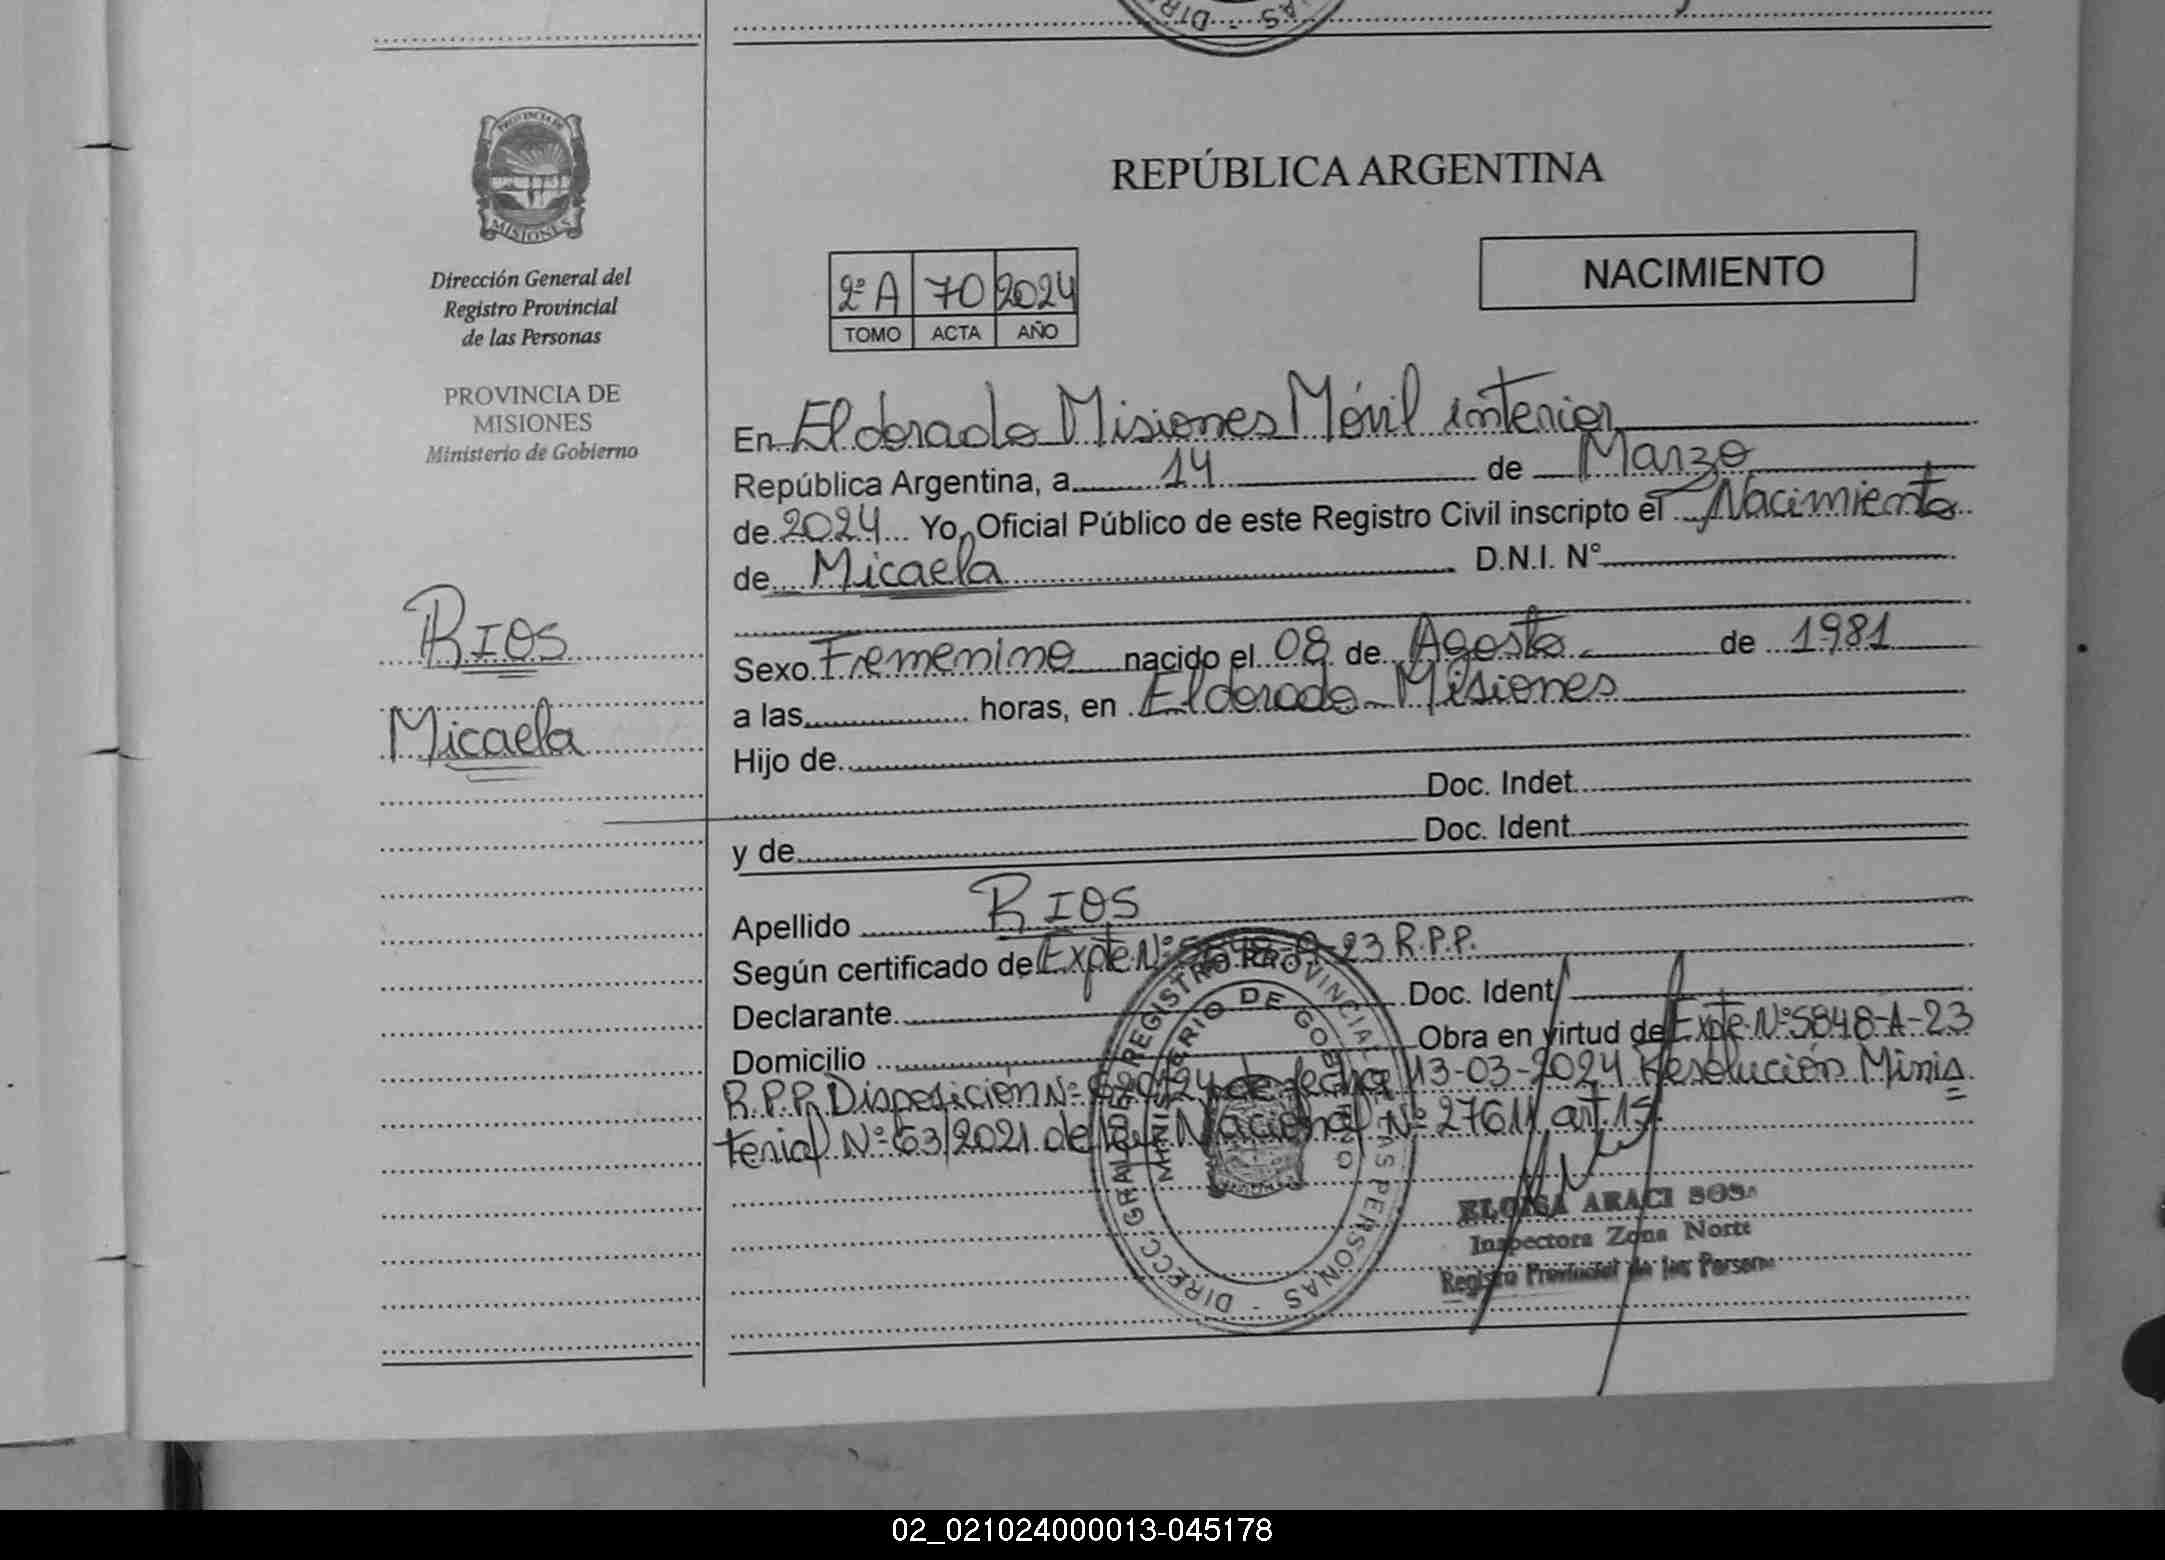 PROVINCIA DE
MISIONES
Dirección General del
Registro Provincial
de las Personas
PROVINCIA DE
MISIONES
Ministerio de Gobierno
RIOS
Micaela
REPÚBLICA ARGENTINA
NACIMIENTO
2º A 70 2024
TOMO ACTA AÑO
En Eldorado Misiones Móvil interior
República Argentina, a 14 de Marzo
de 2024 Yo, Oficial Público de este Registro Civil inscripto el Nacimiento
de Micaela D.N.I. Nº
Sexo Femenino nacido el 08 de Agosto de 1981
a las horas, en Eldorado Misiones
Hijo de
Doc. Indet.
y de Doc. Ident.
Apellido RIOS
Según certificado de Expte Nº 5848-A-23 R.P.P.
Declarante Doc. Ident
Domicilio Obra en virtud de Expte Nº 5848-A-23
R.P.P. Disposición Nº de fecha 13-03-2024 Resolución Minis
terial Nº 63/2021 de Ley Nacional Nº 27611 art. 15
DIRECC. GRAL. DEL REGISTRO PROVINCIAL DE LAS PERSONAS
MINISTERIO DE GOBIERNO
ELOISA ARACI SOSA
Inspectora Zona Norte
Registro Provincial de las Persona
02_021024000013-045178